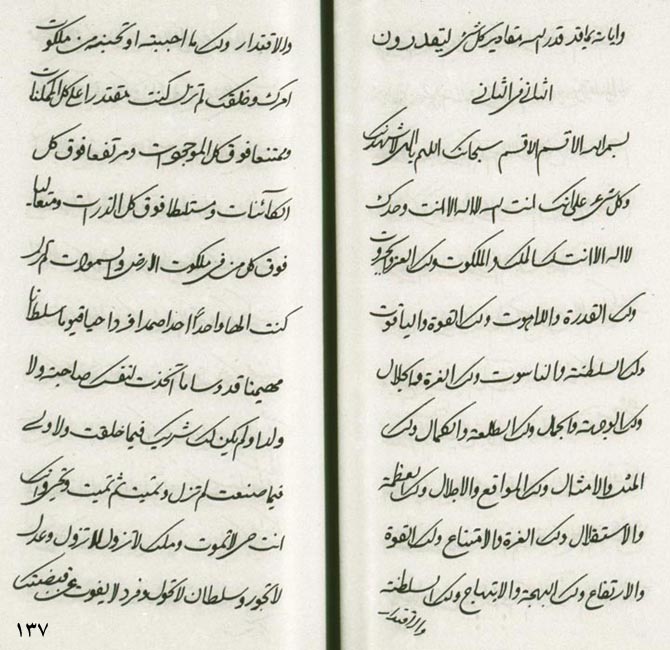 وایاته بما قد قدر الله مقادیر کل شیء لیقدرون
الثانی فی الثانی
بسم الله الاقسم الاقسم سبحانک اللهم یا الهی لاشهدنک
وکل شیء علی انک انت الله لا اله الا انت وحدک
لا اله الا انت لک الملک والملکوت ولک العز والجبروت
ولک القدرة واللاهوت ولک القوة والیاقوت
ولک السلطنة والناسوت ولک العزة والجلال
ولک الوجهة والجمال ولک الطلعة والکمال ولک
المثل والامثال ولک المواقع والاجلال ولک العظمة
والاستقلال ولک العزة والامتناع ولک القوة
والارتفاع ولک البهجة والابتهاج ولک السلطنة
والاقتدار
والاقتدار ولک ما احببته او تحبنه من ملکوت
امرک وخلقک لم تزل کنت مقتدرا علی کل الممکنات
وممتنعا فوق کل الموجودات ومرتفعا فوق کل
الکآئنات ومتسلطا فوق کل الذرات ومتعالیا
فوق کل من فی ملکوت الارض والسموات لم تزل
کنت الها واحدا احدا صمدا فردا حیا قیوما سلطانا
مهیمنا قدوسا ما اتخذت لنفسک صاحبة ولا
ولدا ولم یکن لک شریک فیما خلقت ولا ولی
فیما صنعت لم تزل وتمیت ثم تمیت وتحیی وانک
انت حی لا تموت وملک لا تزول وعدل
لا تجور وسلطان لا تحول وفرد لا یفوت عن قبضتک
۱۳۷